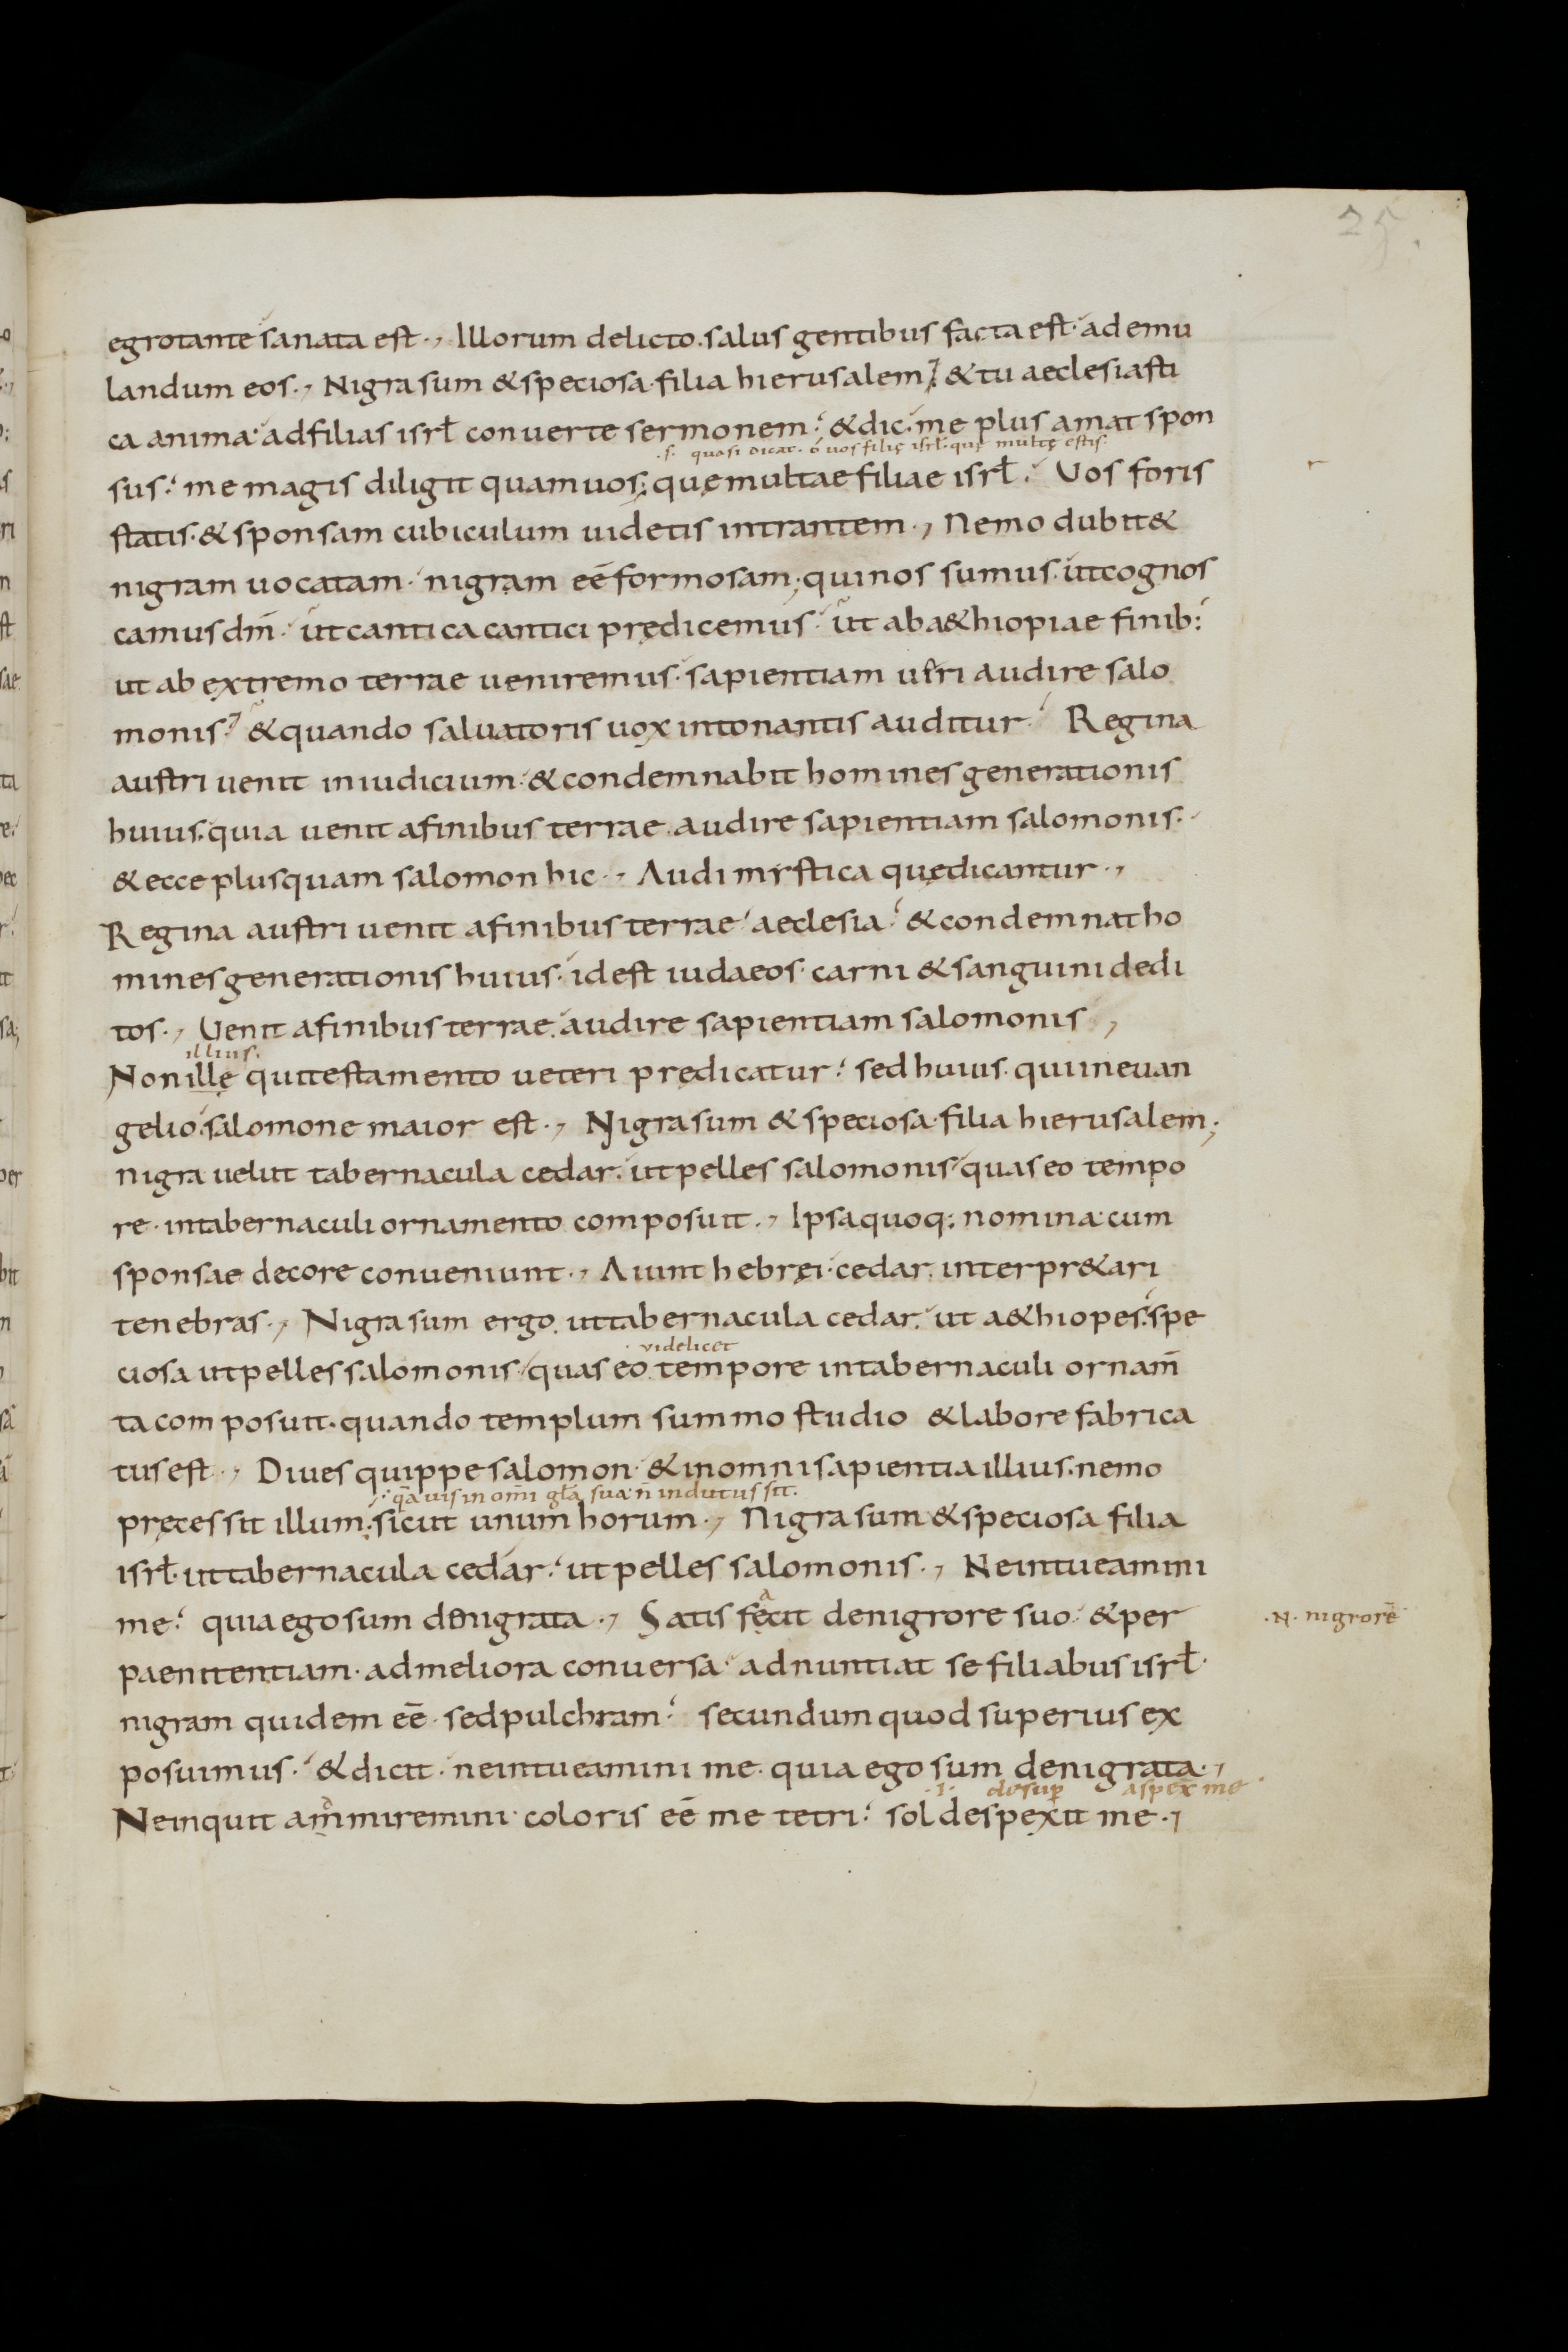 25.
egrotante sanata est., Illorum delicto. salus gentibus facta est. ad emu
landum eos., Nigra sum & speciosa. filia hierusalem; & tu aeclesiasti
ca anima. ad filias isrł conuerte sermonem. & dic. me plus amat spon
.s. quasi dicat. ó uos filię isrł. quę multę estis.
sus. me magis diligit quam uos; quę multae filiae isrł. Uos foris
statis. & sponsam cubiculum uidetis intrantem., Nemo dubit&
nigram uocatam. nigram eē formosam; qui nos sumus. ut cognos
camus dm̄. ut cantica cantici prędicemus. ut ab a&hiopiae finib:
ut ab extremo terrae ueniremus. sapientiam ur̄i audire salo
monis. & quando saluatoris uox intonantis auditur. Regina
austri uenit in iudicium. & condemnabit homines generationis
huius. quia uenit a finibus terrae. audire sapientiam salomonis.
& ecce plusquam salomon hic., Audi mystica quę dicantur.,
Regina austri uenit a finibus terrae. aeclesia. & condemnat ho
mines generationis huius. id est iudaeos. carni & sanguini dedi
tos., Uenit a finibus terrae. audire sapientiam salomonis,
illius.
Non ille qui testamento ueteri prędicatur. sed huius. qui in euan
gelio. salomone maior est., Nigra sum & speciosa. filia hierusalem;
nigra uelut tabernacula cedar. ut pelles salomonis. quas eo tempo
re. in tabernaculi ornamento composuit., Ipsa quoq; nomina. cum
sponsae decore conueniunt., Aiunt hebręi. cedar. interpr&ari
tenebras., Nigra sum ergo. ut tabernacula cedar. ut a&hiopes. spe
videlicet
ciosa ut pelles salomonis. quas eo tempore in tabernaculi ornam̄
ta composuit. quando templum summo studio & labore fabrica
tus est., Diues quippe salomon. & in omni sapientia illius. nemo
qāuis in om̄i gła sua. n̄ indutus sit.
pręcessit illum. sicut unum horum., Nigra sum & speciosa filia
isrł. ut tabernacula cedar. ut pelles salomonis., Ne intueamini
me. quia ego sum denigrata., Satis fecit denigrore suo. & per
.N. nigrore
paenitentiam. ad meliora conuersa. adnuntiat se filiabus isrł.
nigram quidem eē. sed pulchram. secundum quod superius ex
posuimus. & dicit. ne intueamini me. quia ego sum denigrata.,
.i. desup aspex̄ me
Ne inquit ammiremini. coloris eē me tetri. sol despexit me.,